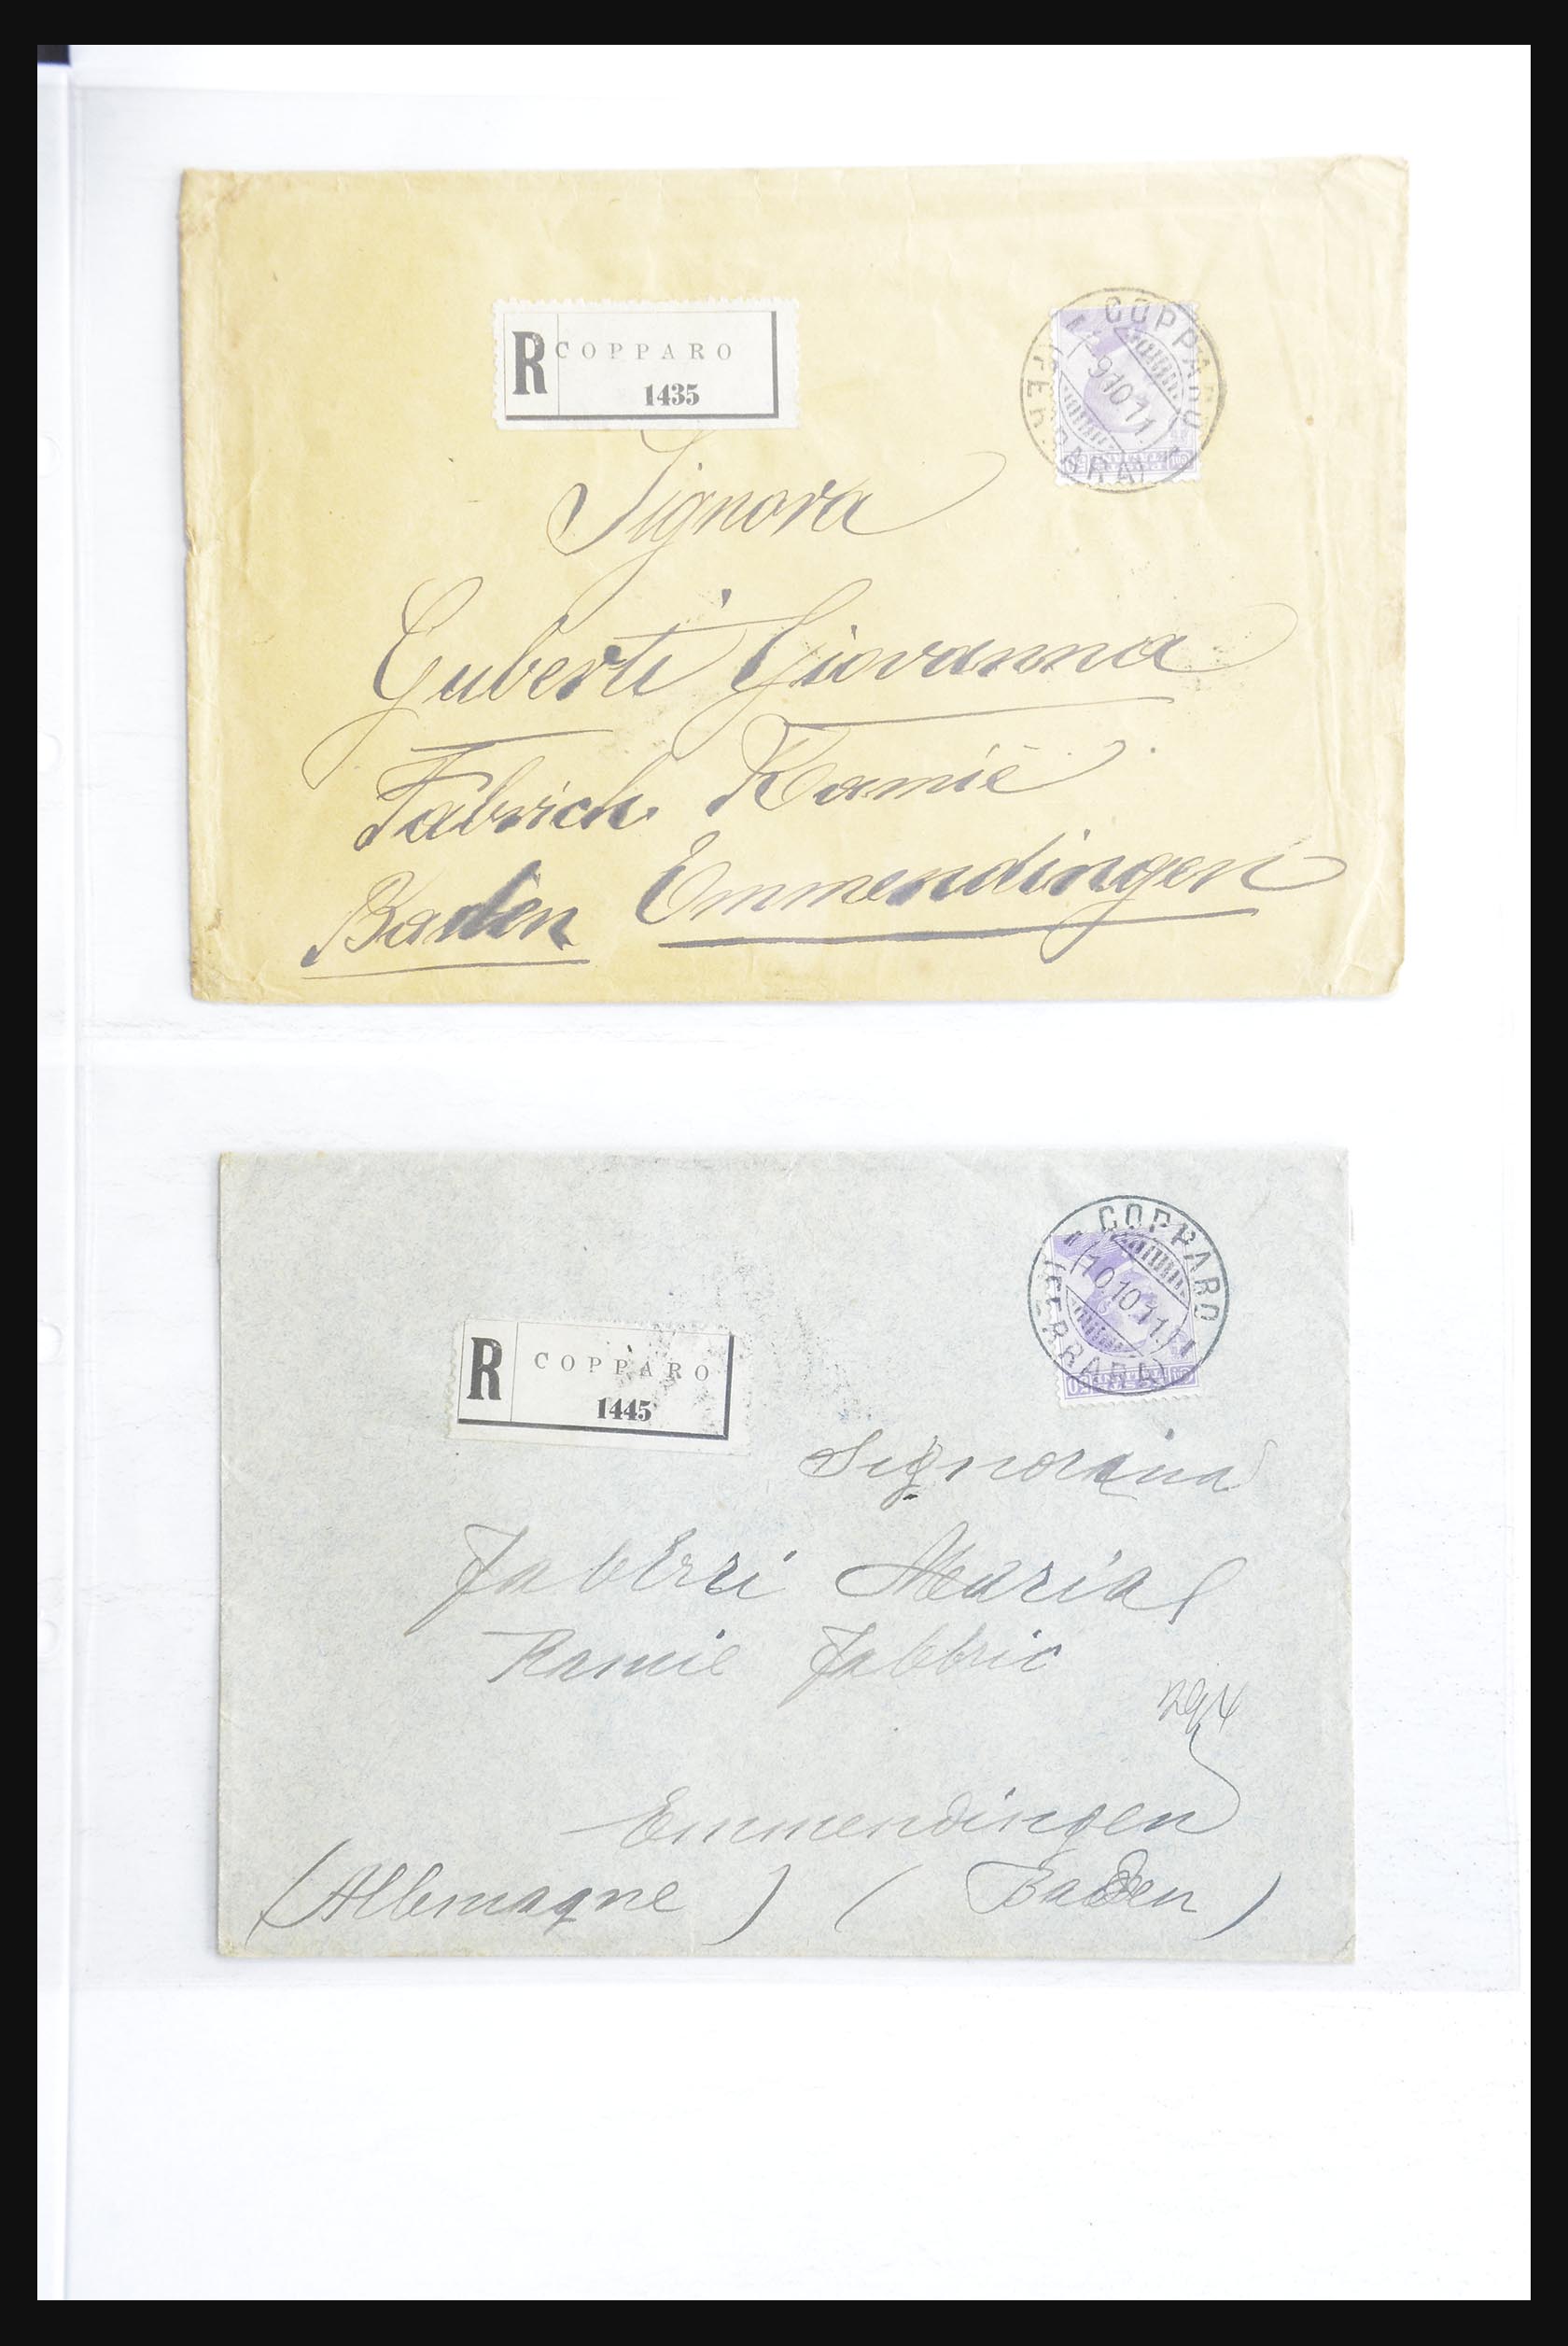 R COPPARO
1435
COPPARO
9 10 11
(FERRARA)
Signora
Guberti Giovanna
Fabrich Ramie
Baden Emmendingen
COPPARO
10 10 11
(FERRARA)
R COPPARO
1445
Signorina
Fabbrri Maria
Ramie Fabbric
Emmendingen
(Allemagne) (Baden)